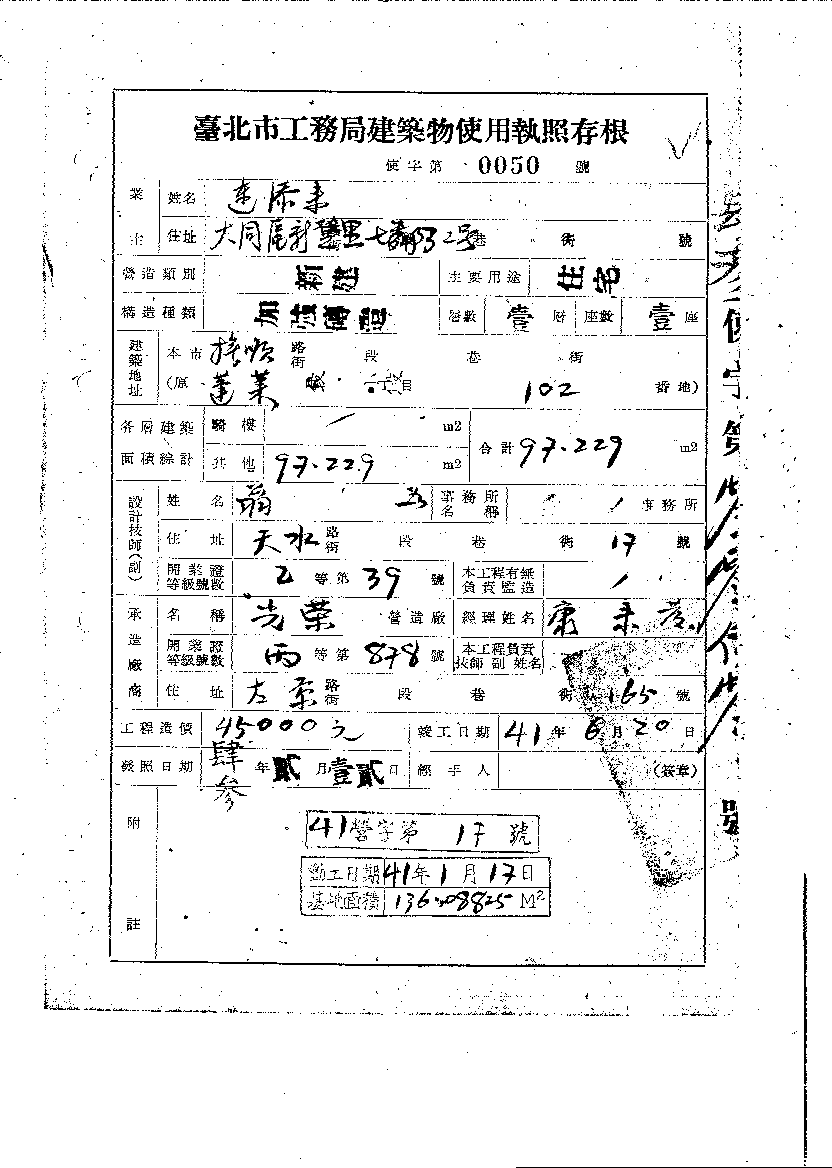 臺北市工務局建築物使用執照存根
使字第 0050 號
業主 姓名 連添來
住址 大同區新 里七鄰 2号 巷 街 號
營造類別 新建 主要用途 住宅
構造種類 加強磚造 層數 壹 層 座數 壹 座
建築地址 本市 撫順 路街 段 巷 街
(原 蓬萊 目 102 番地)
各層建築面積綜計 騎樓 / m2
其他 97.229 m2 合計 97.229 m2
設計技師(副) 姓名 事務所名稱 / 事務所
住址 天水 路街 段 巷 街 17 號
開業證等級號數 乙 等第 39 號 本工程有無負責監造 /
承造廠商 名稱 光榮 營造廠 經理姓名 康
開業證等級號數 丙 等第 878 號 本工程負責技師副姓名
住址 太原 路街 段 巷 街 165 號
工程造價 45000元 竣工日期 41年6月20日
發照日期 肆參年貳月壹貳日 經手人 (簽章)
附註
41營字第 17 號
動工日期 41年1月17日
基地面積 136. M2